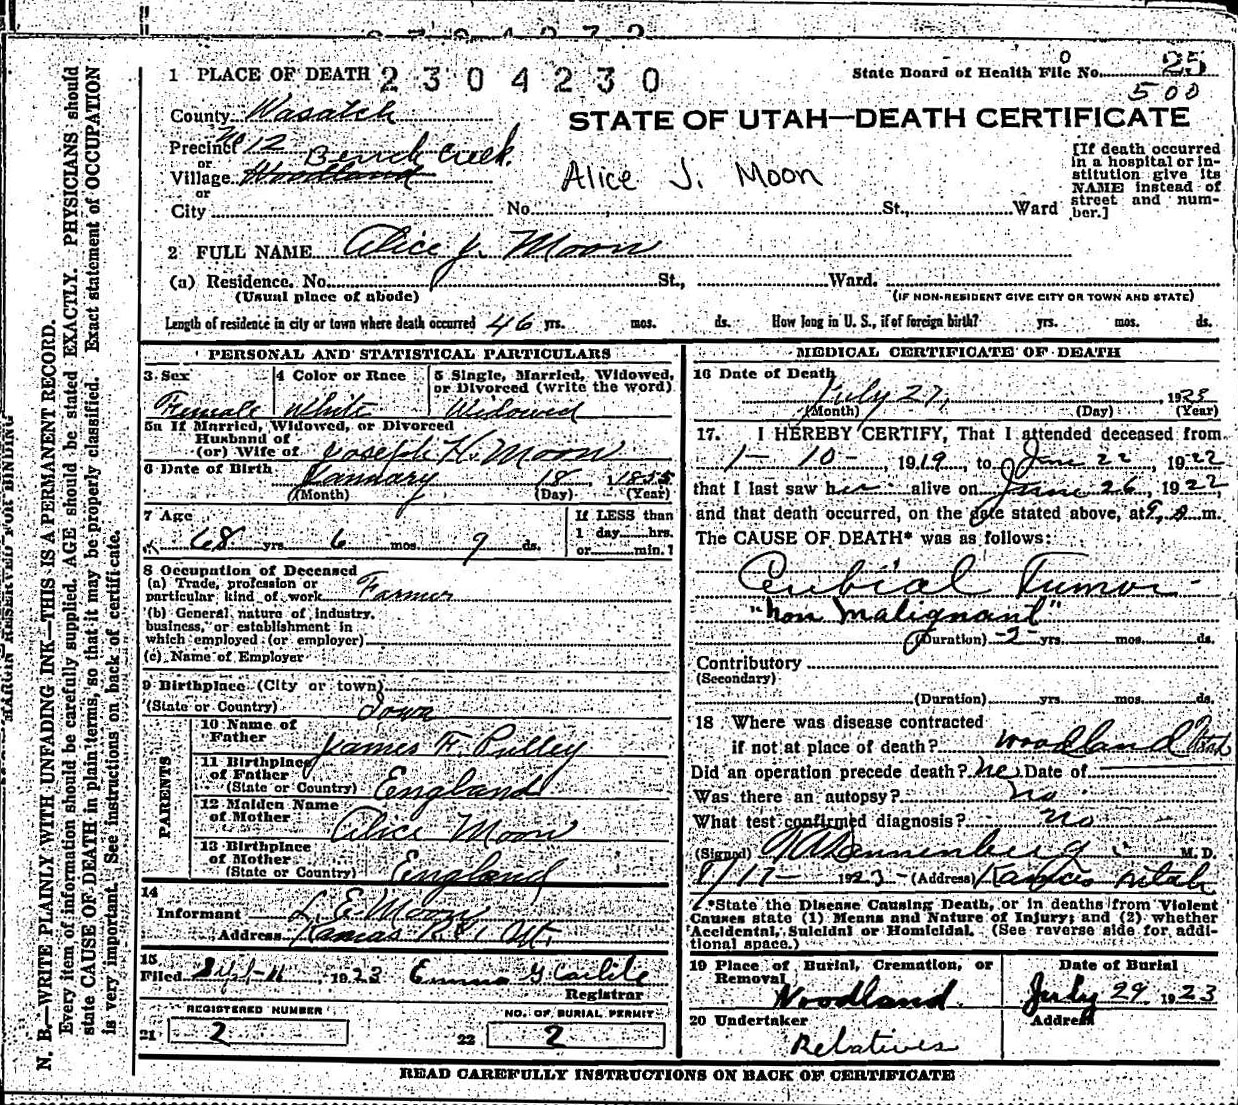 1 PLACE OF DEATH 2 3 0 4 2 3 0
State Board of Health File No. 25
0
500
STATE OF UTAH—DEATH CERTIFICATE
County Wasatch
Precinct No 12 Bench Creek.
or
Village Woodland
or
City No. St., Ward
Alice J. Moon
[If death occurred
in a hospital or in-
stitution give its
NAME instead of
street and num-
ber.]
2 FULL NAME Alice J. Moon
(a) Residence. No. St., Ward.
(Usual place of abode)
(IF NON-RESIDENT GIVE CITY OR TOWN AND STATE)
Length of residence in city or town where death occurred 46 yrs. mos. ds. How long in U. S., if of foreign birth? yrs. mos. ds.
PERSONAL AND STATISTICAL PARTICULARS
3 Sex
Female
4 Color or Race
White
5 Single, Married, Widowed,
or Divorced (write the word)
Widowed
5a If Married, Widowed, or Divorced
Husband of
(or) Wife of Joseph H. Moon
6 Date of Birth
January 18, 1855
(Month) (Day) (Year)
7 Age
68 yrs. 6 mos. 9 ds.
If LESS than
1 day hrs.
or min.?
8 Occupation of Deceased
(a) Trade, profession or
particular kind of work Farmer
(b) General nature of industry,
business, or establishment in
which employed (or employer)
(c) Name of Employer
9 Birthplace (City or town)
(State or Country) Iowa
PARENTS
10 Name of
Father James F. Pulley
11 Birthplace
of Father
(State or Country) England
12 Maiden Name
of Mother Alice Moon
13 Birthplace
of Mother
(State or Country) England
14
Informant L. E. Moon
Address Kamas R.#1 Ut.
15
Filed Sept-11, 1923 Emma G Carlile
Registrar
21 REGISTERED NUMBER
2
22 NO. OF BURIAL PERMIT
2
MEDICAL CERTIFICATE OF DEATH
16 Date of Death
July 27, 1923
(Month) (Day) (Year)
17. I HEREBY CERTIFY, That I attended deceased from
1- 10-, 1919, to June 22, 1922
that I last saw her alive on June 26, 1922,
and that death occurred, on the date stated above, at 9, a m.
The CAUSE OF DEATH* was as follows:
Tumor -
"Non Malignant"
(Duration) -2- yrs. mos. ds.
Contributory
(Secondary)
(Duration) yrs. mos. ds.
18 Where was disease contracted
if not at place of death? Woodland Utah
Did an operation precede death? no Date of
Was there an autopsy? no
What test confirmed diagnosis? no
(Signed) M. D.
8/17- 1923- (Address) Kamas Utah
*State the Disease Causing Death, or in deaths from Violent
Causes state (1) Means and Nature of Injury; and (2) whether
Accidental, Suicidal or Homicidal. (See reverse side for addi-
tional space.)
19 Place of Burial, Cremation, or
Removal
Woodland.
Date of Burial
July 29, 1923
20 Undertaker
Relatives
Address
READ CAREFULLY INSTRUCTIONS ON BACK OF CERTIFICATE
MARGIN RESERVED FOR BINDING
N. B.—WRITE PLAINLY WITH UNFADING INK—THIS IS A PERMANENT RECORD.
Every item of information should be carefully supplied. AGE should be stated EXACTLY. PHYSICIANS should
state CAUSE OF DEATH in plain terms, so that it may be properly classified. Exact statement of OCCUPATION
is very important. See instructions on back of certificate.